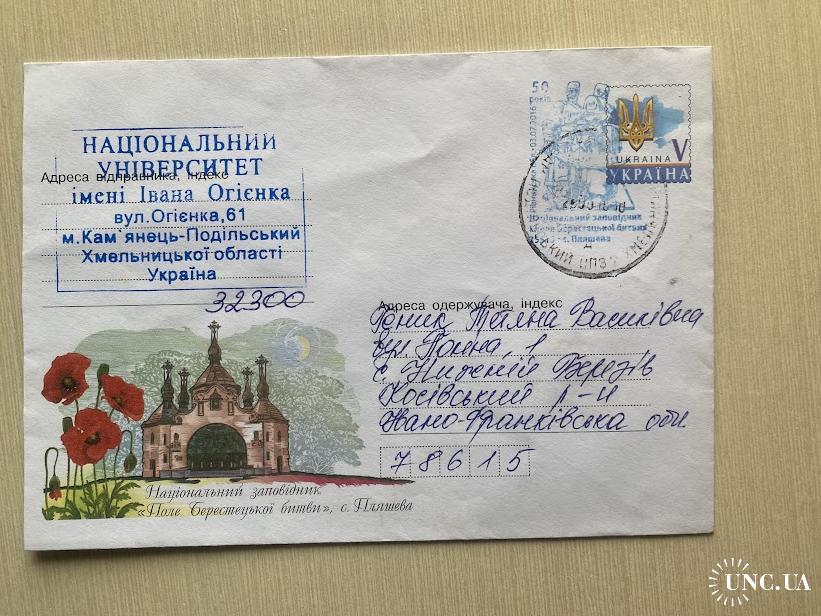 НАЦІОНАЛЬНИЙ
УНІВЕРСИТЕТ
Адреса відправника, індекс
імені Івана Огієнка
вул.Огієнка,61
м.Кам'янець-Подільський
Хмельницької області
Україна
32300
50
років
03.07.2016
Національний заповідник
Поле Берестецької битви
с. Пляшева
UKRAINA V
УКРАЇНА
Адреса одержувача, індекс
Тетяна Василівна
вул.
с. Нижній Березів
Косівський р-н
Івано-Франківська обл
78615
Національний заповідник
«Поле Берестецької битви», с. Пляшева
UNC.UA